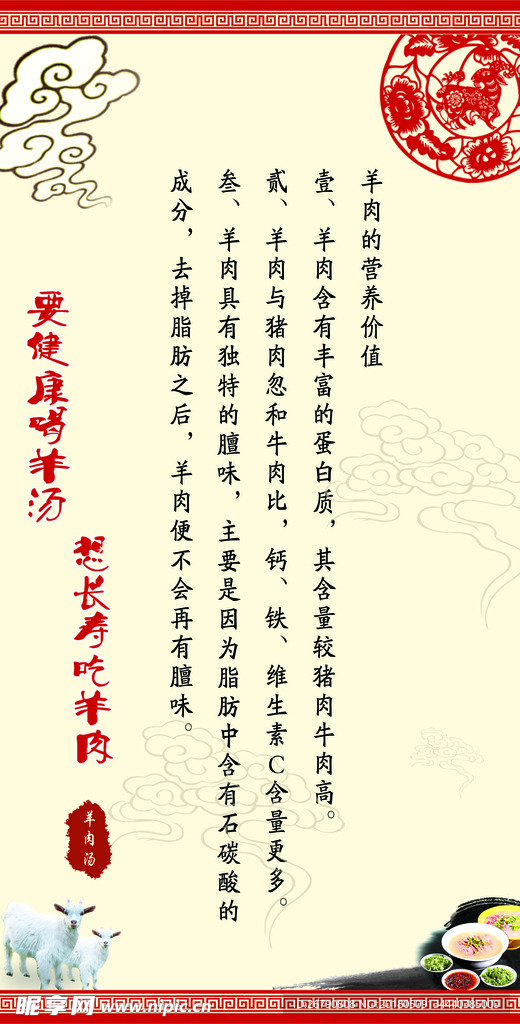 羊肉的营养价值
壹、羊肉含有丰富的蛋白质，其含量较猪肉牛肉高。
贰、羊肉与猪肉忽和牛肉比，钙、铁、维生素C含量更多。
叁、羊肉具有独特的膻味，主要是因为脂肪中含有石碳酸的
成分，去掉脂肪之后，羊肉便不会再有膻味。
要健康喝羊汤
想长寿吃羊肉
羊肉汤
昵享网 www.nipic.cn